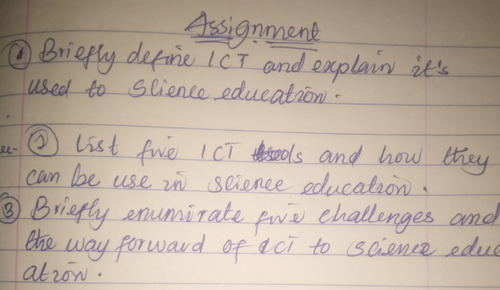 Assignment
① Briefly define ICT and explain it's
used to Science education.
② List five ICT tools and how they
can be use in science education.
③ Briefly enumirate five challenges and
the way forward of ICT to science educ
ation.